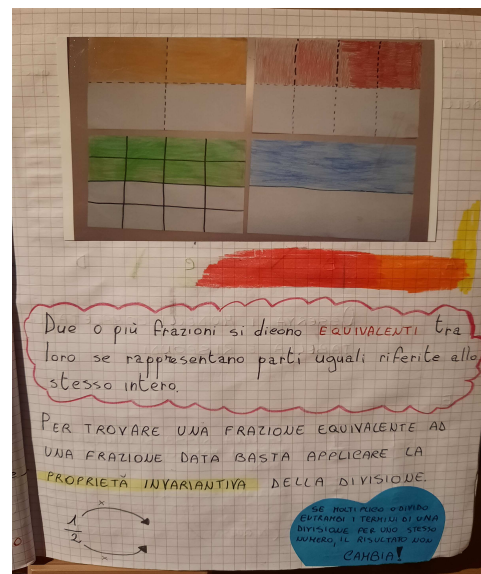 Due o più frazioni si dicono EQUIVALENTI tra
loro se rappresentano parti uguali riferite allo
stesso intero.
PER TROVARE UNA FRAZIONE EQUIVALENTE AD
UNA FRAZIONE DATA BASTA APPLICARE LA
PROPRIETÀ INVARIANTIVA DELLA DIVISIONE.
x
1
2
x
SE MOLTIPLICO O DIVIDO
ENTRAMBI I TERMINI DI UNA
DIVISIONE PER UNO STESSO
NUMERO, IL RISULTATO NON
CAMBIA!